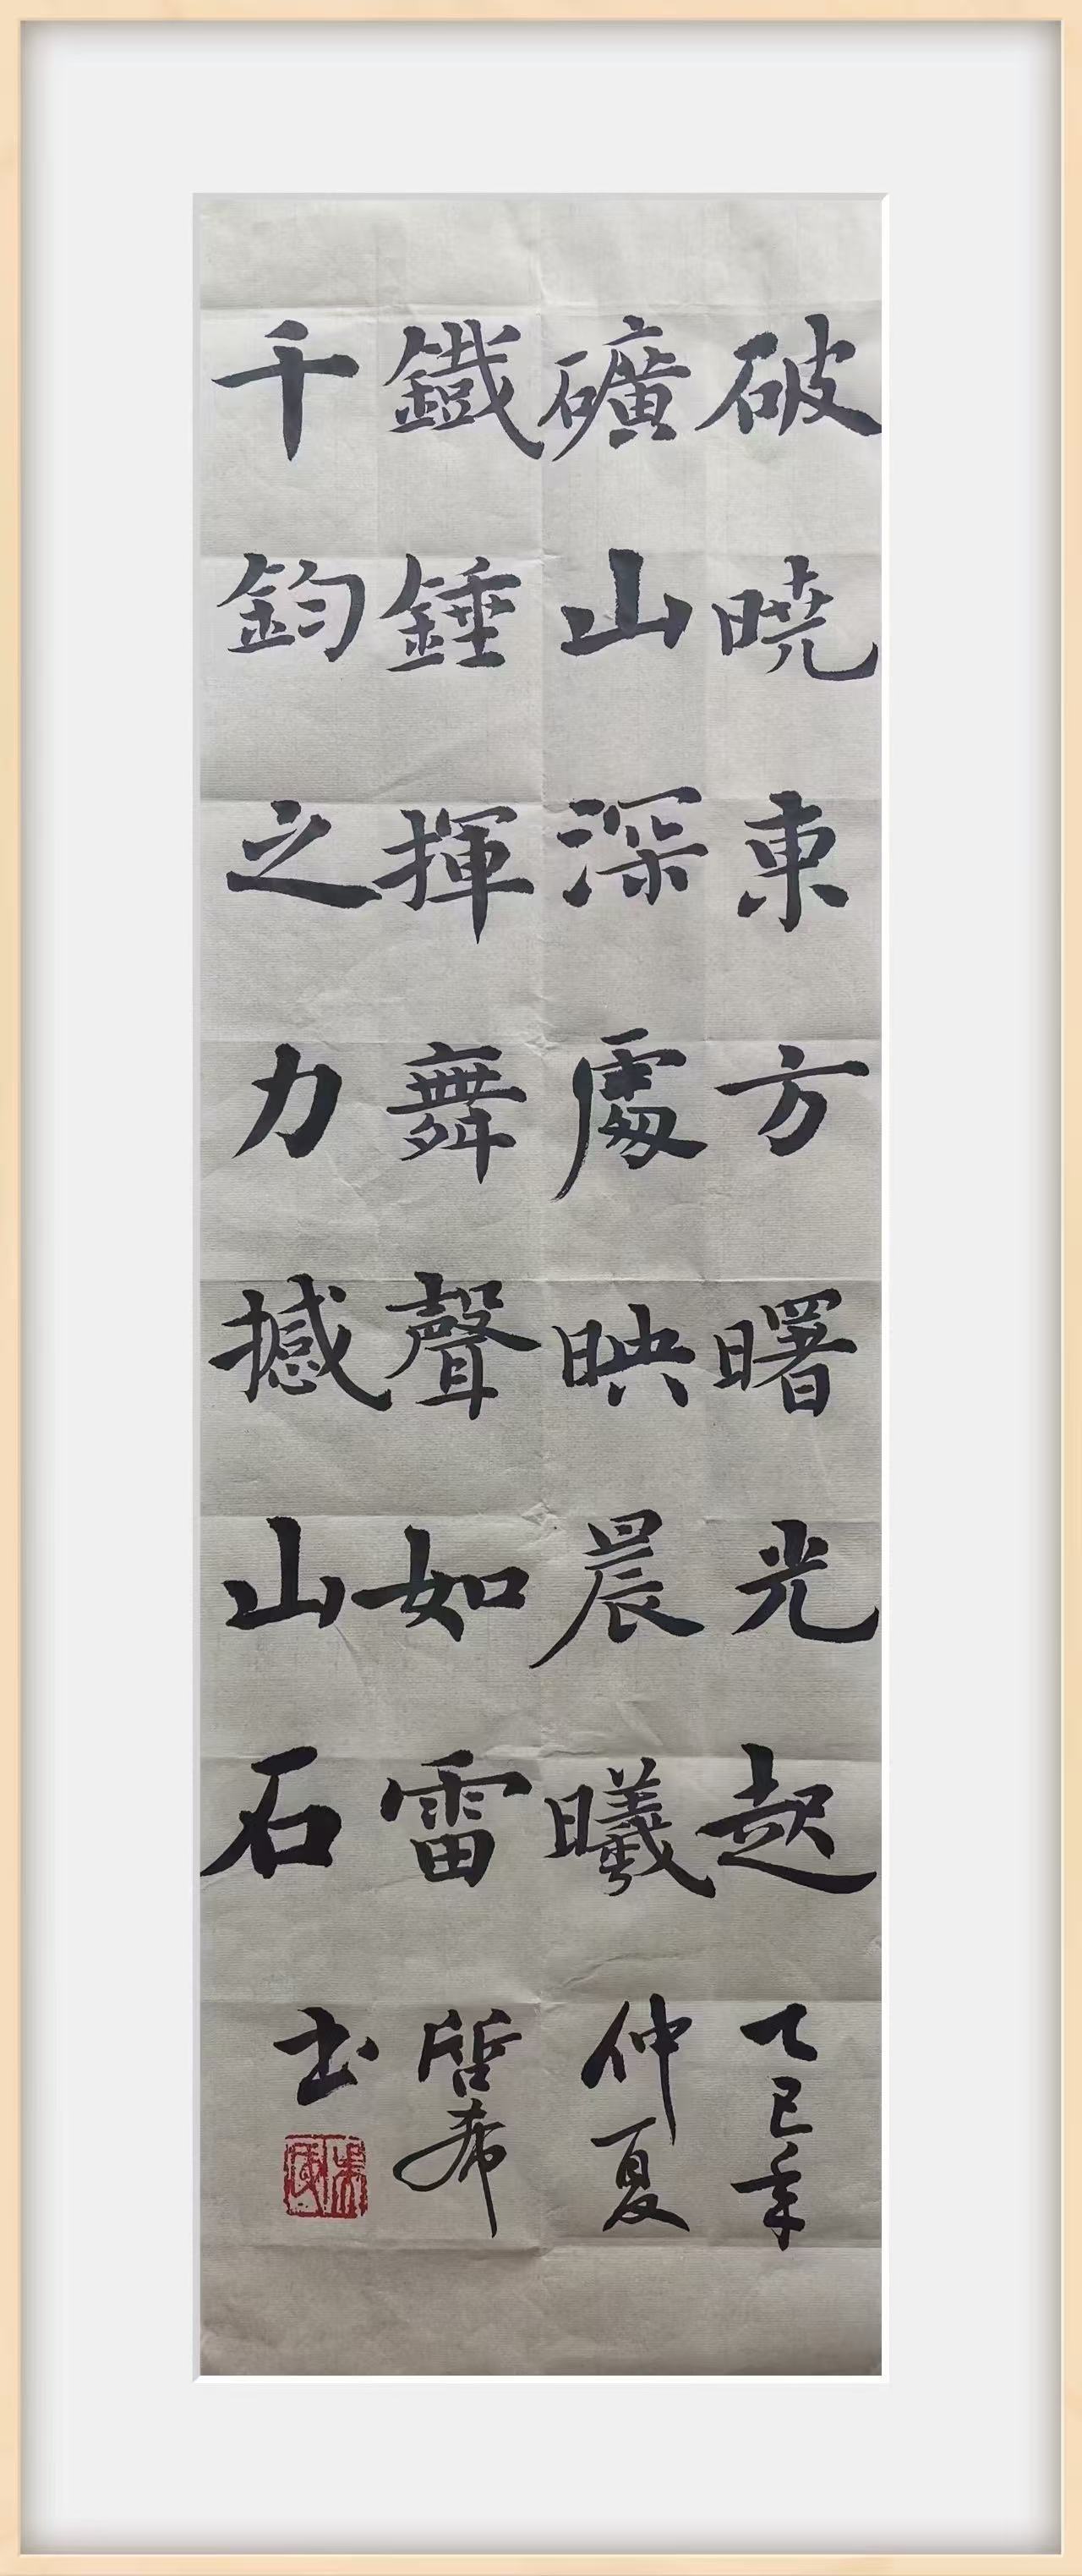 破曉東方曙光起
礦山深處映晨曦
鐵錘揮舞聲如雷
千鈞之力撼山石
乙巳年
仲夏
哲希
书